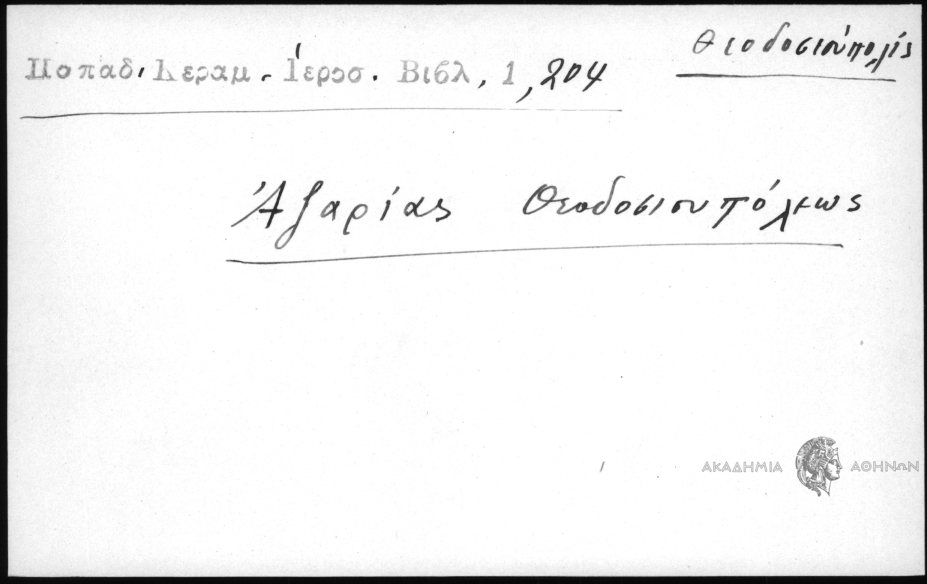 Θεοδοσιούπολις
Παπαδ. Κεραμ. Ἱεροσ. Βιβλ. 1, 204
Ἀζαρίας Θεοδοσιουπόλεως
ΑΚΑΔΗΜΙΑ ΑΘΗΝΩΝ